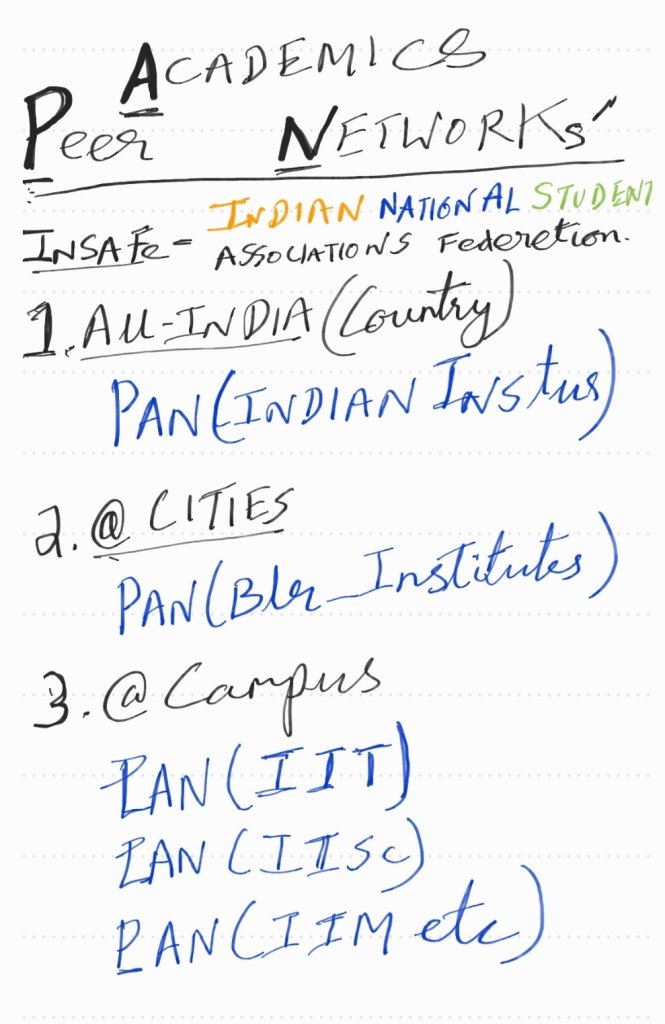 ACADEMICS
Peer NETWORKs'
INDIAN NATIONAL STUDENT
INSAFe = ASSOCIATIONS Federetion.
1. All-INDIA (Country)
PAN (INDIAN Instus)
2. @ CITIES
PAN (Blr_Institutes)
3. @ Campus
PAN (IIT)
PAN (IISc)
PAN (IIM etc)